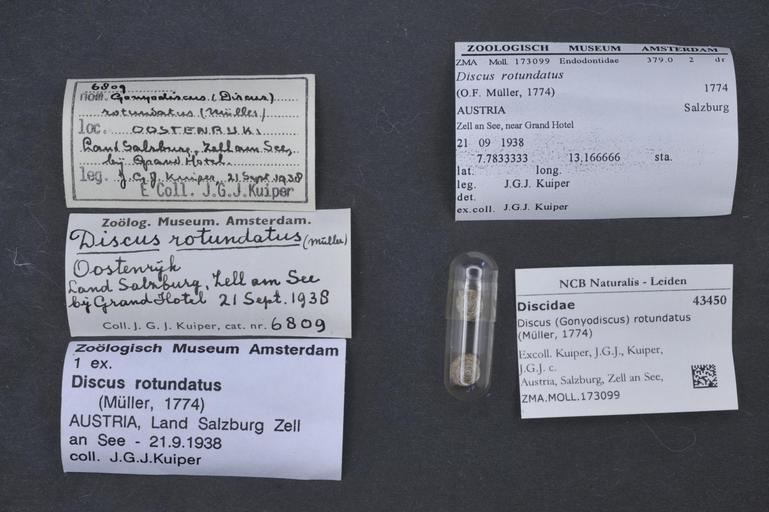 6809
nom. Gonyodiscus (Discus)
rotundatus (Müller)
loc. OOSTENRIJK:
Land Salzburg, Zell am See,
bij Grand Hotel.
leg. J.G.J. Kuiper, 21 Sept. 1938
E Coll. J.G.J.Kuiper
Zoölog. Museum. Amsterdam.
Discus rotundatus (Müller)
Oostenrijk
Land Salzburg, Zell am See
bij Grand Hotel 21 Sept. 1938
Coll. J. G. J. Kuiper, cat. nr. 6809
Zoölogisch Museum Amsterdam
1 ex.
Discus rotundatus
(Müller, 1774)
AUSTRIA, Land Salzburg Zell
an See - 21.9.1938
coll. J.G.J.Kuiper
ZOOLOGISCH MUSEUM AMSTERDAM
ZMA Moll. 173099 Endodontidae 379.0 2 dr
Discus rotundatus
(O.F. Müller, 1774) 1774
AUSTRIA Salzburg
Zell an See, near Grand Hotel
21 09 1938
7.7833333 13.166666 sta.
lat. long.
leg. J.G.J. Kuiper
det.
ex.coll. J.G.J. Kuiper
NCB Naturalis - Leiden
Discidae 43450
Discus (Gonyodiscus) rotundatus
(Müller, 1774)
Excoll. Kuiper, J.G.J., Kuiper,
J.G.J. c.
Austria, Salzburg, Zell an See,
ZMA.MOLL.173099